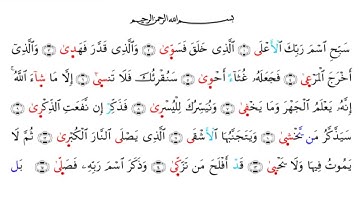 بسم الله الرحمن الرحيم
سَبِّحِ ٱسْمَ رَبِّكَ ٱلْأَعْلَى ۝ ٱلَّذِى خَلَقَ فَسَوَّىٰ ۝ وَٱلَّذِى قَدَّرَ فَهَدَىٰ ۝ وَٱلَّذِىٓ
أَخْرَجَ ٱلْمَرْعَىٰ ۝ فَجَعَلَهُۥ غُثَآءً أَحْوَىٰ ۝ سَنُقْرِئُكَ فَلَا تَنسَىٰٓ ۝ إِلَّا مَا شَآءَ ٱللَّهُ ۚ
إِنَّهُۥ يَعْلَمُ ٱلْجَهْرَ وَمَا يَخْفَىٰ ۝ وَنُيَسِّرُكَ لِلْيُسْرَىٰ ۝ فَذَكِّرْ إِن نَّفَعَتِ ٱلذِّكْرَىٰ ۝
سَيَذَّكَّرُ مَن يَخْشَىٰ ۝ وَيَتَجَنَّبُهَا ٱلْأَشْقَى ۝ ٱلَّذِى يَصْلَى ٱلنَّارَ ٱلْكُبْرَىٰ ۝ ثُمَّ لَا
يَمُوتُ فِيهَا وَلَا يَحْيَىٰ ۝ قَدْ أَفْلَحَ مَن تَزَكَّىٰ ۝ وَذَكَرَ ٱسْمَ رَبِّهِۦ فَصَلَّىٰ ۝ بَلْ